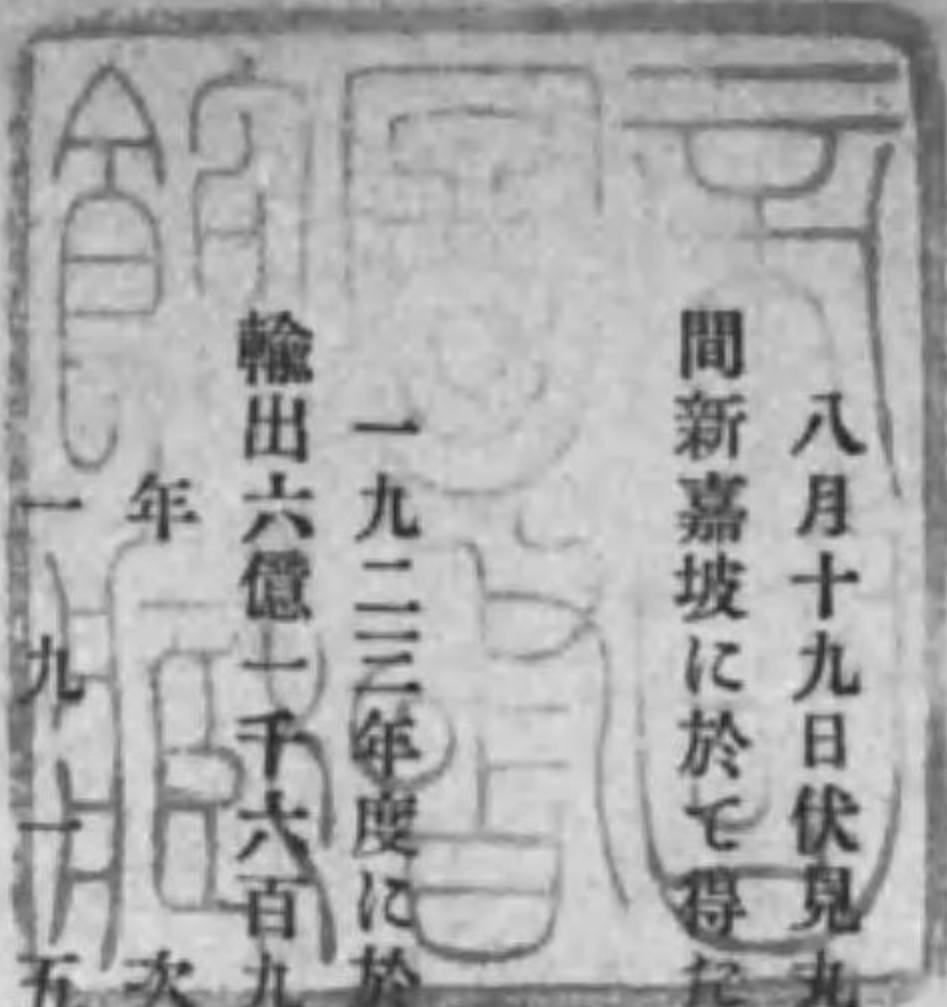 八月十九日伏見丸
間新嘉坡に於て得た
一九二三年度に於
輸出六億一千六百九
年次
一九一五